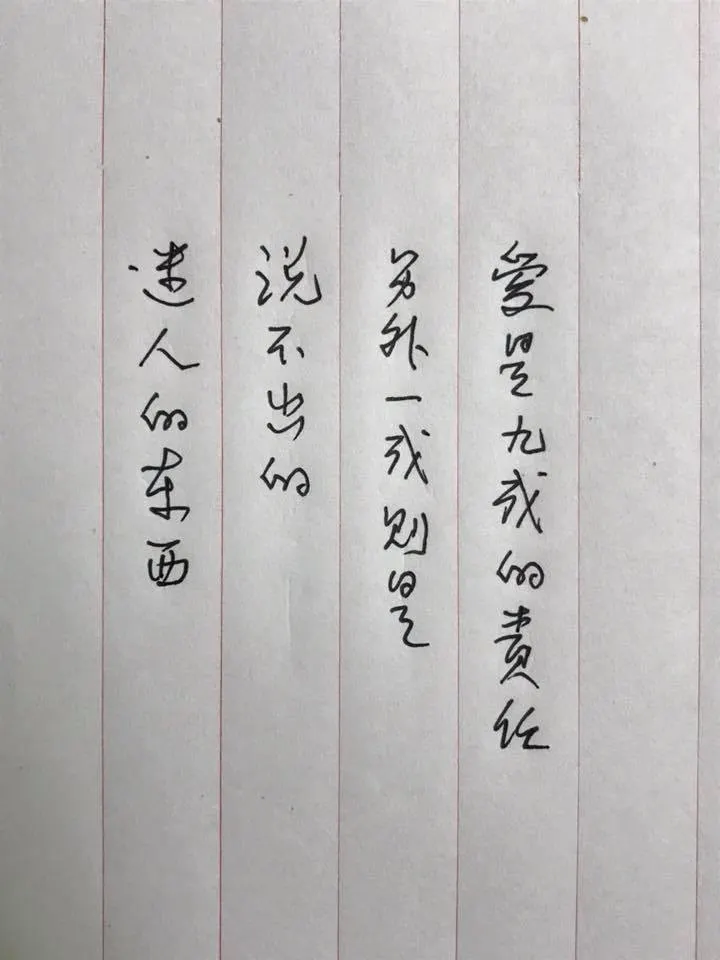 爱是九成的责任
另外一成则是
说不出的
迷人的东西